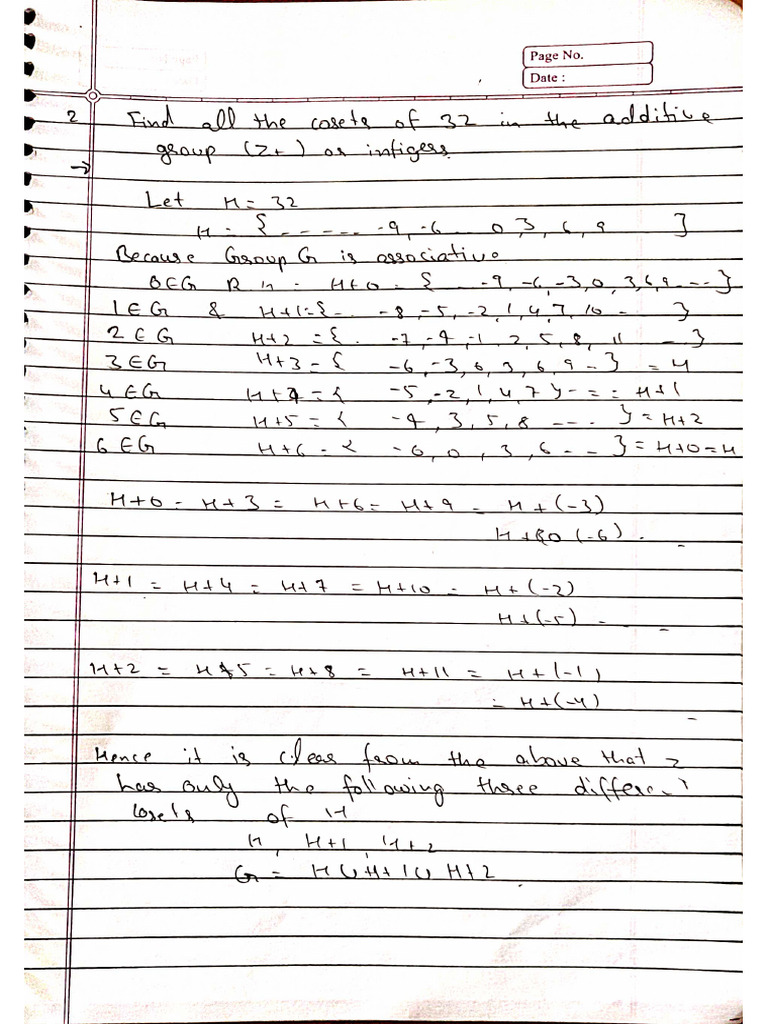 Page No.
Date :
2 Find all the cosets of 3Z in the additive
group (Z+) or intigers
→
Let H = 3Z
H = { ------ -9, -6 0, 3, 6, 9 }
Because Group G is associative
0∈G H+0 = { -9, -6, -3, 0, 3, 6, 9 --- }
1∈G & H+1 = { -- -8, -5, -2, 1, 4, 7, 10 - }
2∈G H+2 = { . -7, -4, -1, 2, 5, 8, 11 - }
3∈G H+3 = { -6, -3, 0, 3, 6, 9 - } = H
4∈G H+4 = { -5, -2, 1, 4, 7 } - = = H+1
5∈G H+5 = { -4, 3, 5, 8 --- } = H+2
6∈G H+6 = { -6, 0, 3, 6 -- } = H+0 = H
H+0 = H+3 = H+6 = H+9 = H+(-3)
H+ (-6) .
H+1 = H+4 = H+7 = H+10 = H+(-2)
H+(-5) -
H+2 = H+5 = H+8 = H+11 = H+(-1)
= H+(-4)
Hence it is clear from the above that Z
has only the following three different
cosets of H
H, H+1, H+2
G = H ∪ H+1 ∪ H+2